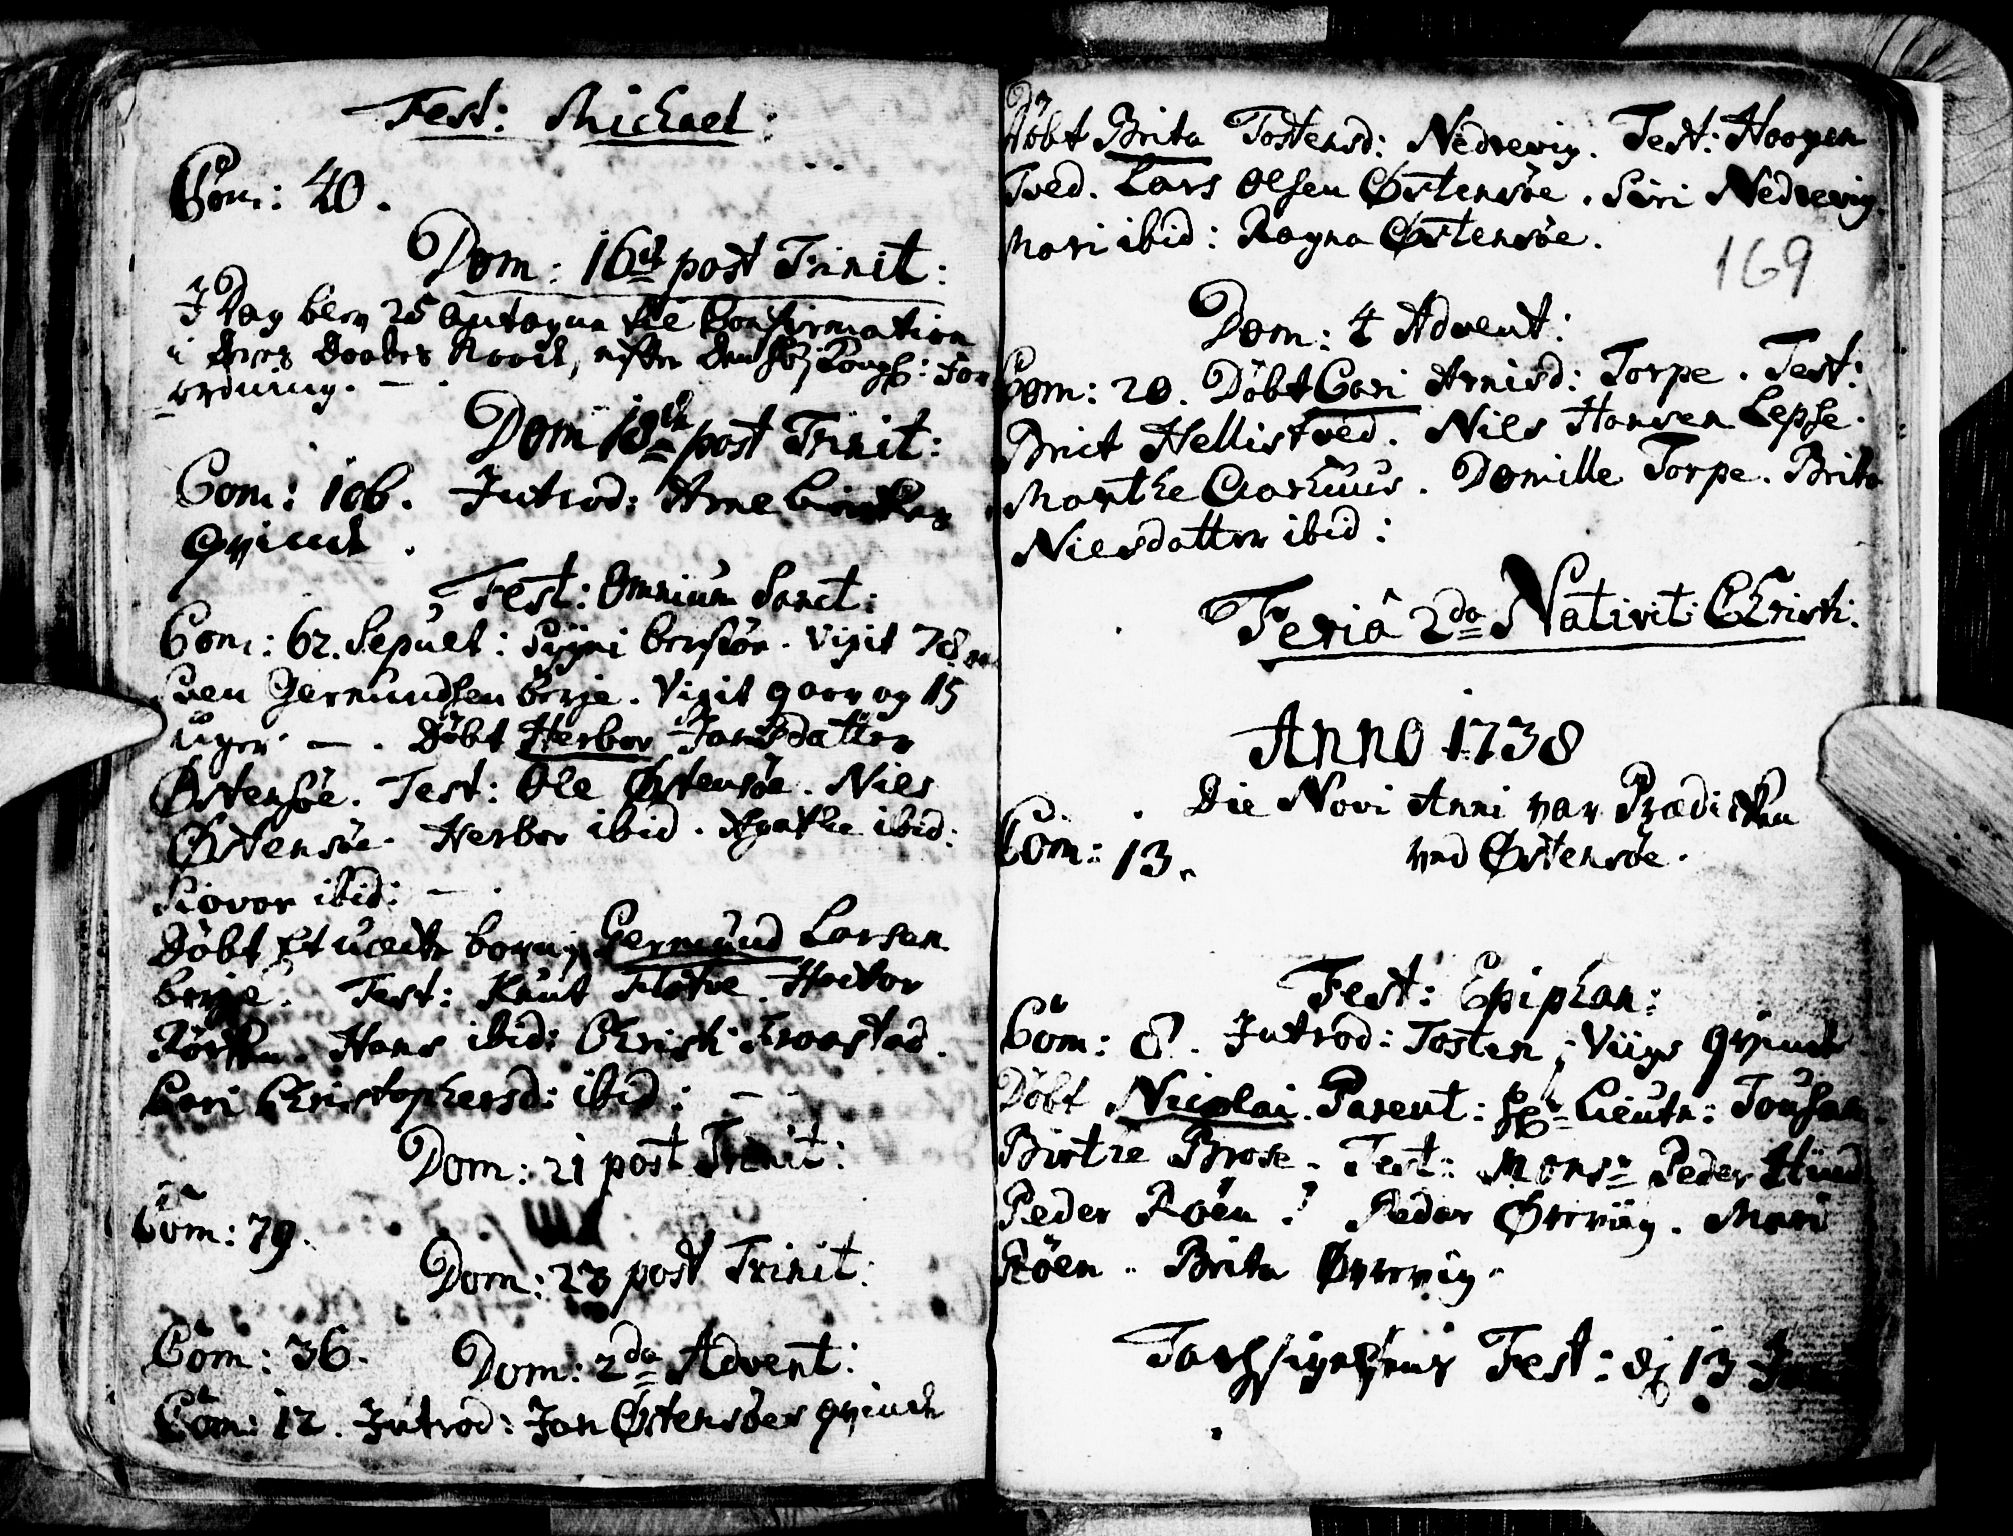 Fest: Michael:
Com: 40.
Dom: 16 post Trinit:
I Dag blev 25 antagne til Confirmation
i deres Daabes Naade, efter den
ordning. —
Dom 18 post Trinit:
Com: 106. Introd: Arne
Qvinde.
Fest: Omnium Sanct:
Com: 62. Sepult: Vixit 78
Sven Germundsen Berje. Vixit 9 aar og 15
Uger — . Döbt Herbor Jansdatter
Østensöe. Test: Ole Østensöe. Niels
Østensöe. Herbor ibid. Agathe ibid:
Siovor ibid: —
Döbt Et uægte barn, Germund Larsen
Berje. Test: Knut Flotve.
Hans ibid: Christi Froestad.
Kari Christophersd: ibid: —
Dom: 21 post Trinit:
Com: 79.
Dom: 23 post Trinit:
Com: 36.
Dom: 2da Advent:
Com: 12. Introd: Jan Østensöes qvinde
Döbt Brita Tostensd: Nedrevig. Test: Haagen
Tved. Lars Olsen Østensöe. Siri Nedrevig
Mari ibid: Ragna Østensöe.
169
Dom: 4 Advent:
Com: 20. Döbt Gari Arnisd: Torpe. Test:
Brict Hellistved. Nils Hansen Lepse.
Marthe Aarhuus. Domille Torpe. Brita
Nielsdatter ibid:
Feria 2da Nativit: Christi:
Anno 1738
Die Novi Anni var Prædiken
Com: 13. ved Østensöe.
Fest: Epiphan:
Com: 8. Introd: Tosten Viigs qvinde
Döbt Nicolai. Parent: Hr Lieutn: Tousan
Birthe Brose. Test: Monsr Peder Hund
Peder Röen. Peder Øvrevig. Mari
Röen. Brita Øvrevig.
Tachsigelsens Fest: d 13 Jan